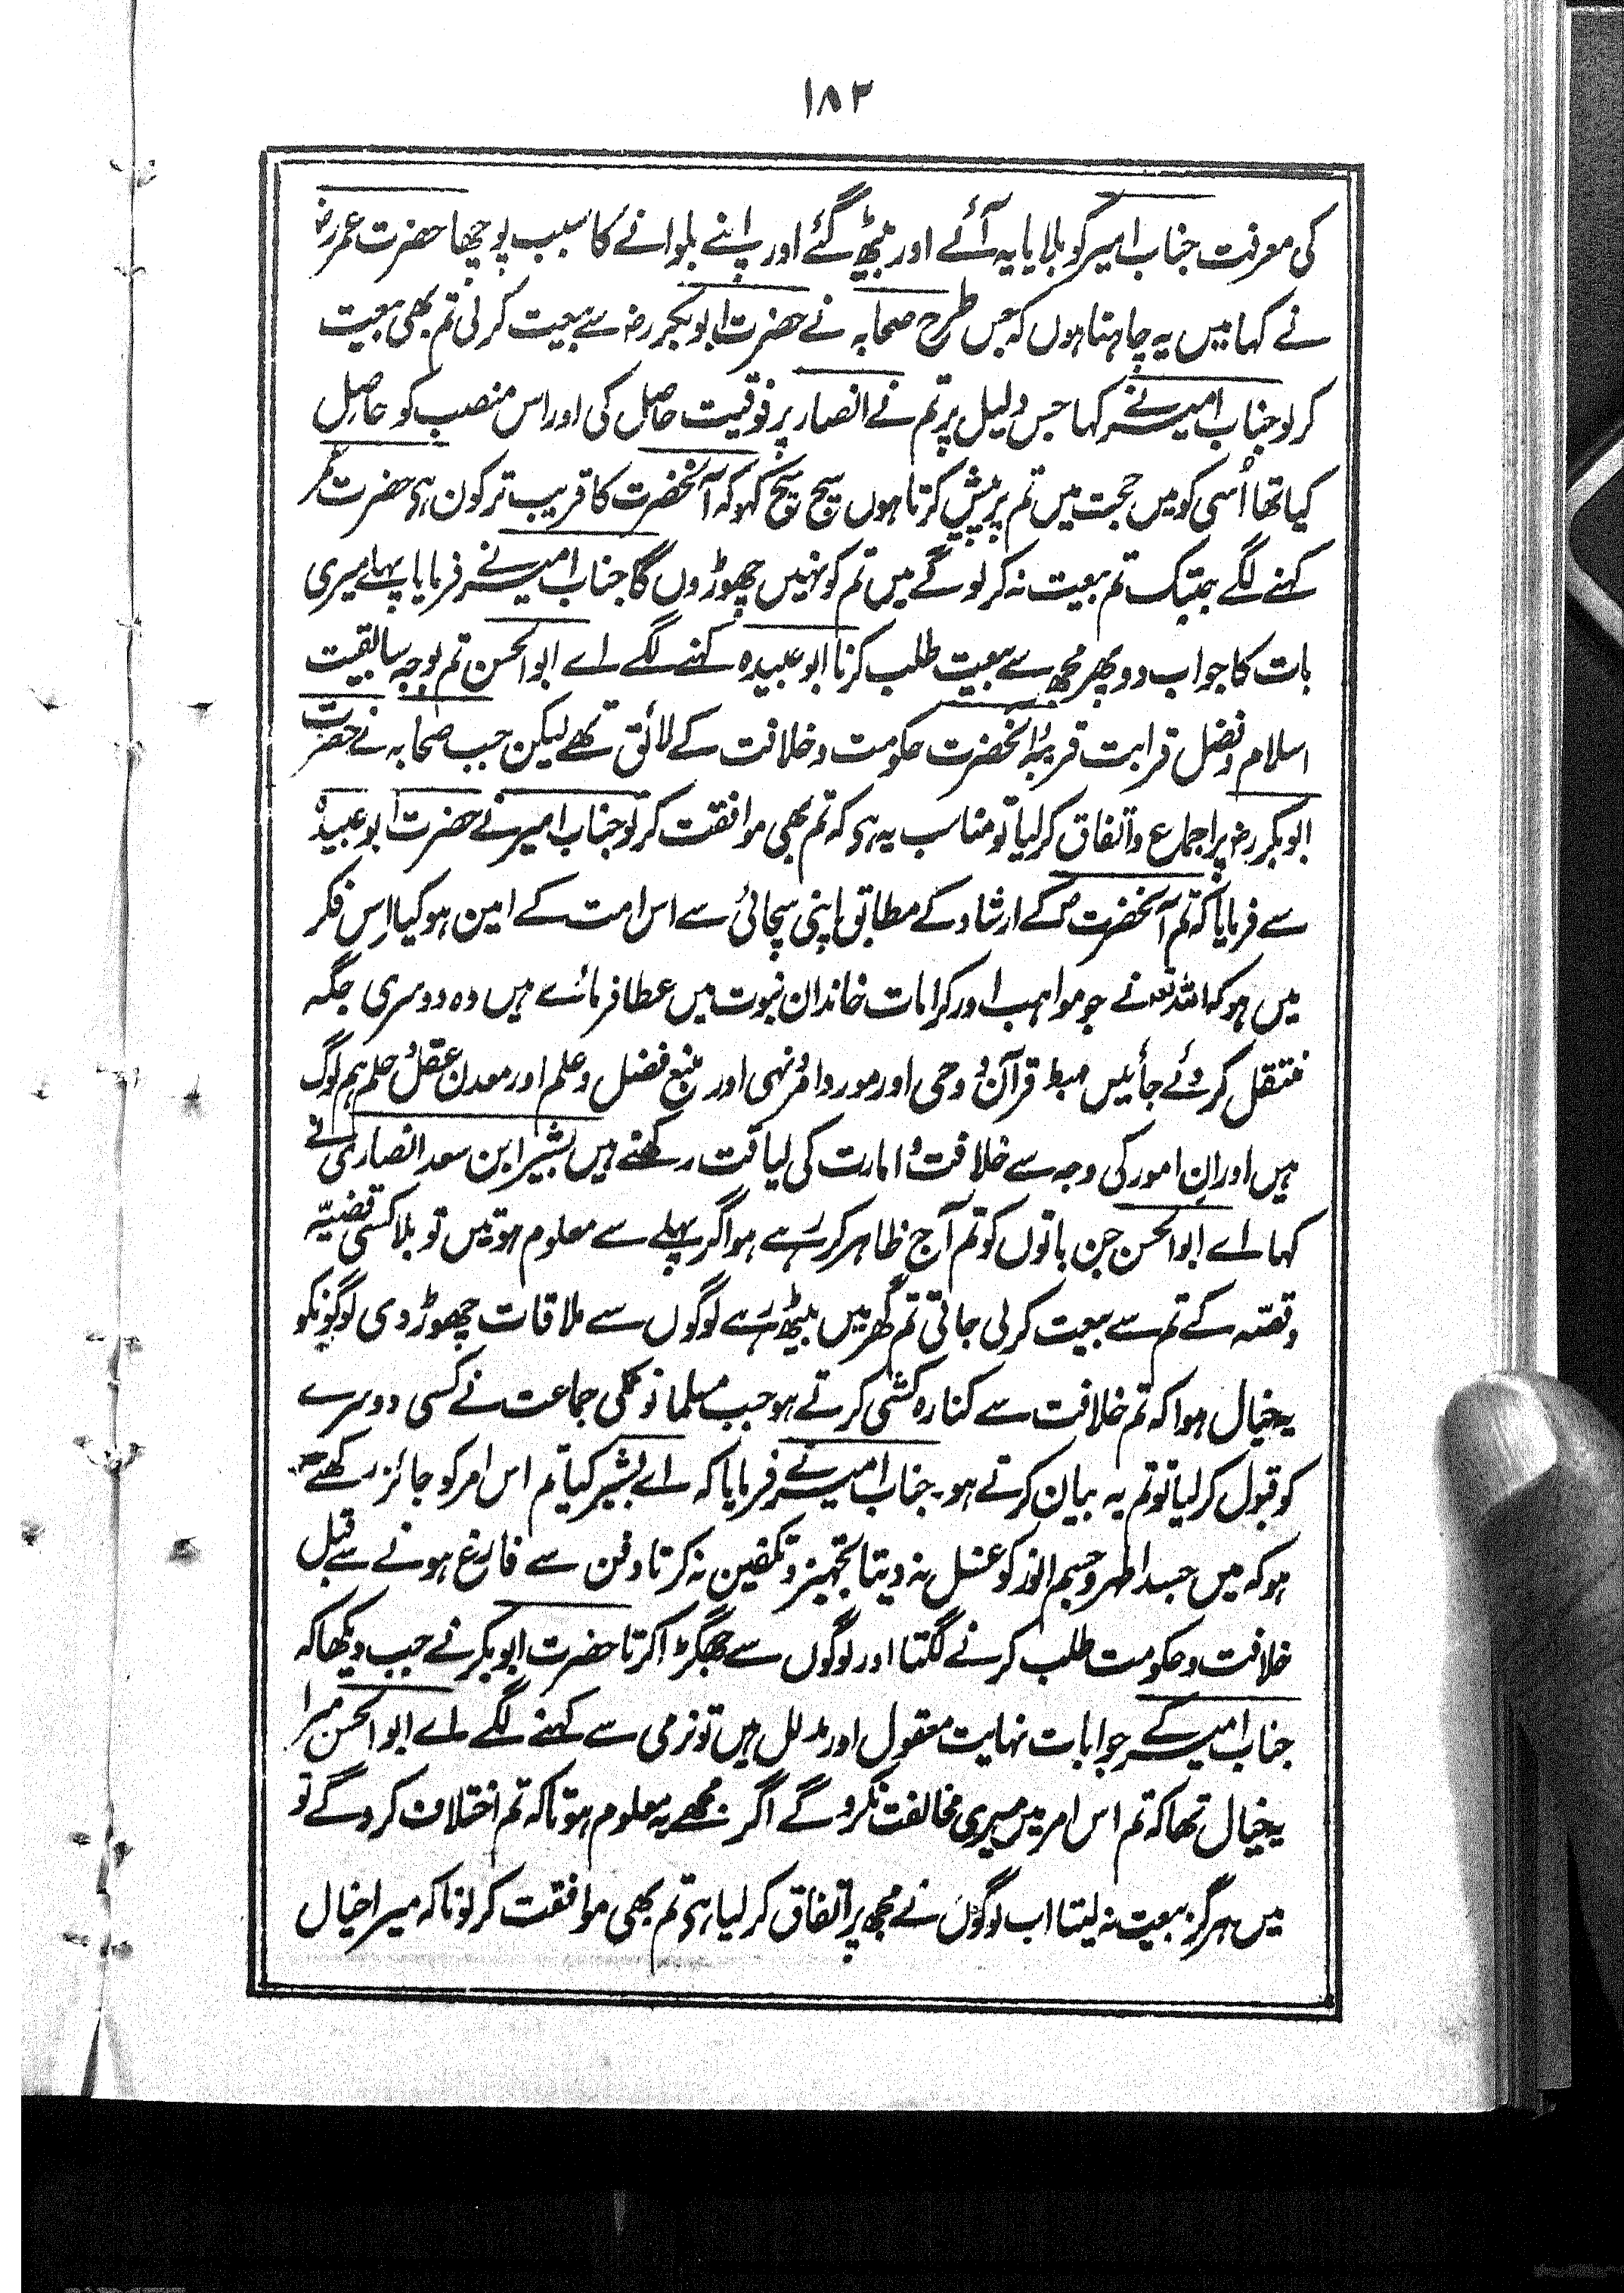 ۱۸۳
کی معرفت جناب امیر کو بلایا یہ آئے اور بیٹھ گئے اور اپنے بلوانے کا سبب پوچھا حضرت عمر رض
نے کہا میں یہ چاہتا ہوں کہ جس طرح صحابہ نے حضرت ابو بکر رض سے بیعت کر لی تم بھی بیعت
کر لو جناب امیر نے کہا جس دلیل پر تم نے انصار پر فوقیت حاصل کی اور اس منصب کو حاصل
کیا تھا اُسی کو میں حجت میں تم پر پیش کرتا ہوں سچ سچ کہو کہ آنحضرت کا قریب تر کون ہی حضرت عمر
کہنے لگے جبتک تم بیعت نہ کر لو گے میں تم کو نہیں چھوڑوں گا جناب امیر نے فرمایا پہلے میری
بات کا جواب دو پھر مجھ سے بیعت طلب کرنا ابو عبیدہ کہنے لگے اے ابو الحسن تم بوجہ سابقیت
اسلام و فضل قرابت قریبۂ آنحضرت حکومت و خلافت کے لائق تھے لیکن جب صحابہ نے حضرت
ابو بکر رض پر اجماع و اتفاق کر لیا تو مناسب یہ ہی کہ تم بھی موافقت کر لو جناب امیر نے حضرت ابو عبیدہ
سے فرمایا کہ تم آنحضرت کے ارشاد کے مطابق اپنی سچائی سے اس امت کے امین ہو کیا اِس فکر
میں ہو کہ اللہ تعہ نے جو مواہب اور کرامات خاندان نبوت میں عطا فرمائے ہیں وہ دوسری جگہ
منتقل کر دئے جائیں مہبط قرآن و وحی اور مورد امر و نہی اور منبع فضل و علم اور معدن عقل و حلم ہم لوگ
ہیں اور ان امور کی وجہ سے خلافت و امارت کی لیاقت رکھتے ہیں بشیر ابن سعد انصاری نے
کہا اے ابو الحسن جن باتوں کو تم آج ظاہر کر رہے ہو اگر پہلے سے معلوم ہوتیں تو بلا کسی قضیّہ
وقصّہ کے تم سے بیعت کر لی جاتی تم گھر میں بیٹھ رہے لوگوں سے ملاقات چھوڑ دی لوگونکو
یہ خیال ہوا کہ تم خلافت سے کنارہ کشی کرتے ہو جب مسلمانونکی جماعت نے کسی دوسرے
کو قبول کر لیا تو تم یہ بیان کرتے ہو۔ جناب امیر نے فرمایا کہ اے بشیر کیا تم اس امر کو جائز رکھتے
ہو کہ میں جسد اطہر و جسم انور کو غسل نہ دیتا تجہیز و تکفین نہ کرتا دفن سے فارغ ہونے سے قبل
خلافت و حکومت طلب کرنے لگتا اور لوگوں سے جھگڑا کرتا حضرت ابو بکر نے جب دیکھا کہ
جناب امیر کے جوابات نہایت معقول اور مدلل ہیں تو نرمی سے کہنے لگے اے ابو الحسن میرا
یہ خیال تھا کہ تم اس امر میں میری مخالفت نکرو گے اگر مجھے یہ معلوم ہوتا کہ تم اختلاف کرو گے تو
میں ہرگز بیعت نہ لیتا اب لوگوں نے مجھ پر اتفاق کر لیا ہی تم بھی موافقت کر لو تا کہ میرا خیال